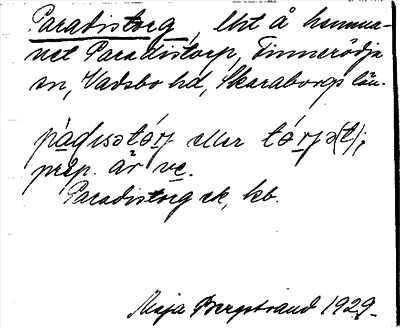 Paradistorg, lht å hemma-
net Paradistorp, Finnerödja
sn, Vadsbo hd, Skaraborgs län.
pàdɩsətórj eller tórjə(t);
prep. är ve.
Paradistorg ek, kb.
Maja Bergstrand 1929.